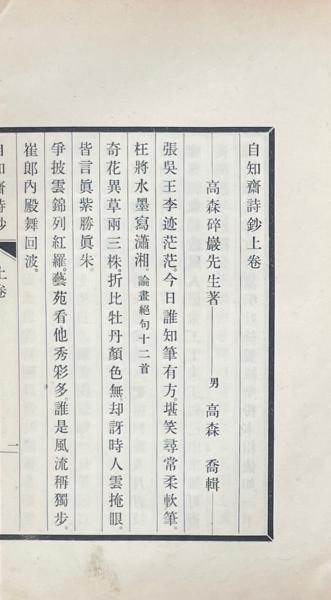 自知齋詩鈔上卷
高森碎巖先生著
男 高森 喬輯
張吳王李迹茫茫。今日誰知筆有方。堪笑尋常柔軟筆。
枉將水墨寫瀟湘。論畫絕句十二首
奇花異草兩三株。折比牡丹顏色無。却訝時人雲掩眼。
皆言眞紫勝眞朱。
爭披雲錦列紅羅。藝苑看他秀彩多。誰是風流稱獨步。
崔郞內殿舞回波。
自知齋詩鈔
上卷
一